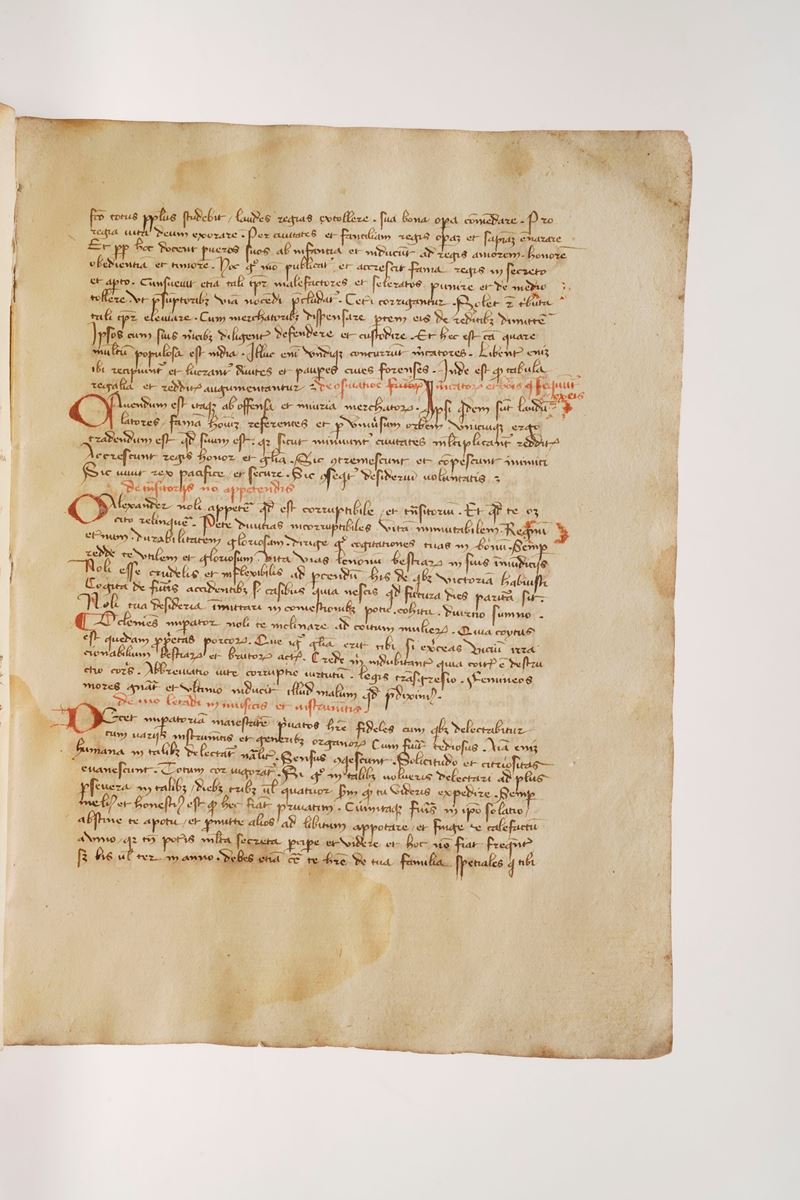 fcō totus ppłus studebit / laudes regias extollere . sua bona opa cōmēdare . Pro
regia uita deum exorare . Per ciuitates et familiam regis opaz et sapiaz enarare
Et pp hoc docent pueros suos ab infantia et inducūt ad regis amorem . honorē
obedientiā et timorē . Hoc g° mō publicat̄ et accrescit fama regis in secreto
et apto . Consueuit etiā tali tpr malefactores et sceleratos punire et de medio
tollere ut psūptoribz via nocēdi pcludat̄ . Cetī corrigantur . Solet z tbuta
tali tpr eleuare . Cum merchatoribz dispensare ptem eis de redditibz dimittē
Ipsos cum suis mcibz diligent̄ defendere et custodire . Et hec est cā quare
multū populosa est india . Illuc enī vndiqz concurrūt mcatores . Libent̄ eniz
ibi recipiunt̄ et lucrant̄ diuites et paupes ciues forenses . Inde est q tabula
regalia et redditꝰ augumentantur
Cauendum est itaqz ab offensa et iniuria merchatoꝝ . Ipsi qdem sūt laudū
latores / fama homīz referentes et p vniūsum orbem vnicuiqz ergo
tradendum est qd suum est . qr sicut muniunt̄ ciuitates mltiplicant̄ redditꝰ
Accrescunt regis honor et glīa . Sic ꝯtremescunt et cōpescunt inimici
Sic viuit rex pacifice et secure . Sic ꝯseqt̄ desiderīu voluntatis
de tnsitorijs nō appetendis
O Alexander noli appetē qd est corruptibile et tnsitoriū . Et qd te oz
cito relinquē . Pete diuitias incorruptibiles vitā inmutabilem . Regnū
eternum . durabilitatem gloriosam . dirige g° cogitationes tuas in bonū . Semp
redde te vtilem et gloriosum . Vita vias leonum bestiaꝝ in suis inmūdicijs
Noli esse crudelis et inflexibilis ad pcendū his de qbz victoria habuisti
Cogita de futīs accidentibz f casibus quia nescis qd futura dies paritā sit .
Noli tua desideria īmittari in comestionibz potu . cohitu . diurtio sumno .
O clemēs impator noli te inclinare ad coitum mulieꝝ . Quia coytus
est quedam ppetas porcoꝝ . Que igᵗ glīa erit tibi si exceas viciū irra
cionabilium bestiaꝝ et brutoꝝ actꝰ . Crede m indubitant̄ quia coitꝰ ē destru
ctio corīs . Abbreuiatio uite corruptio virtutū . legis trāsgressio . Femineos
mores gnāt et vltimo inducit illud malum qd pdiximꝰ .
de mō letādi in musicis et instrumētis
Decet impatoriā maiestatē pīuatos hrē fideles cum qbz delectabitur
cum varijs instrumētis et generibz organoꝝ Cum fuīt tediosus . Aīa eniz
humana in talibz delectat̄ nālit̄ . Sensus ꝯqescunt . Solicitudo et curiositas
euanescunt . Totum cor vigorat̄ . Si g° in talibz volueris delectari ad plus
pseuera in talibz / diebz tribz ul quatuor pm q tu videris expedire . Semp
meliꝰ et honestiꝰ est q hec fiat priuatim . Cumitaqz fuīs in ipo solatio /
abstine te a potu / et pmitte alios ad libitum appotare / et finge te calefactū
a vino / qr tū potīs mlta secreta pcipe et videre et hoc nō fiat frequēt̄
sz bis ul ter in anno . debes etiā cē te hrē de tua familia spetiales q tibi